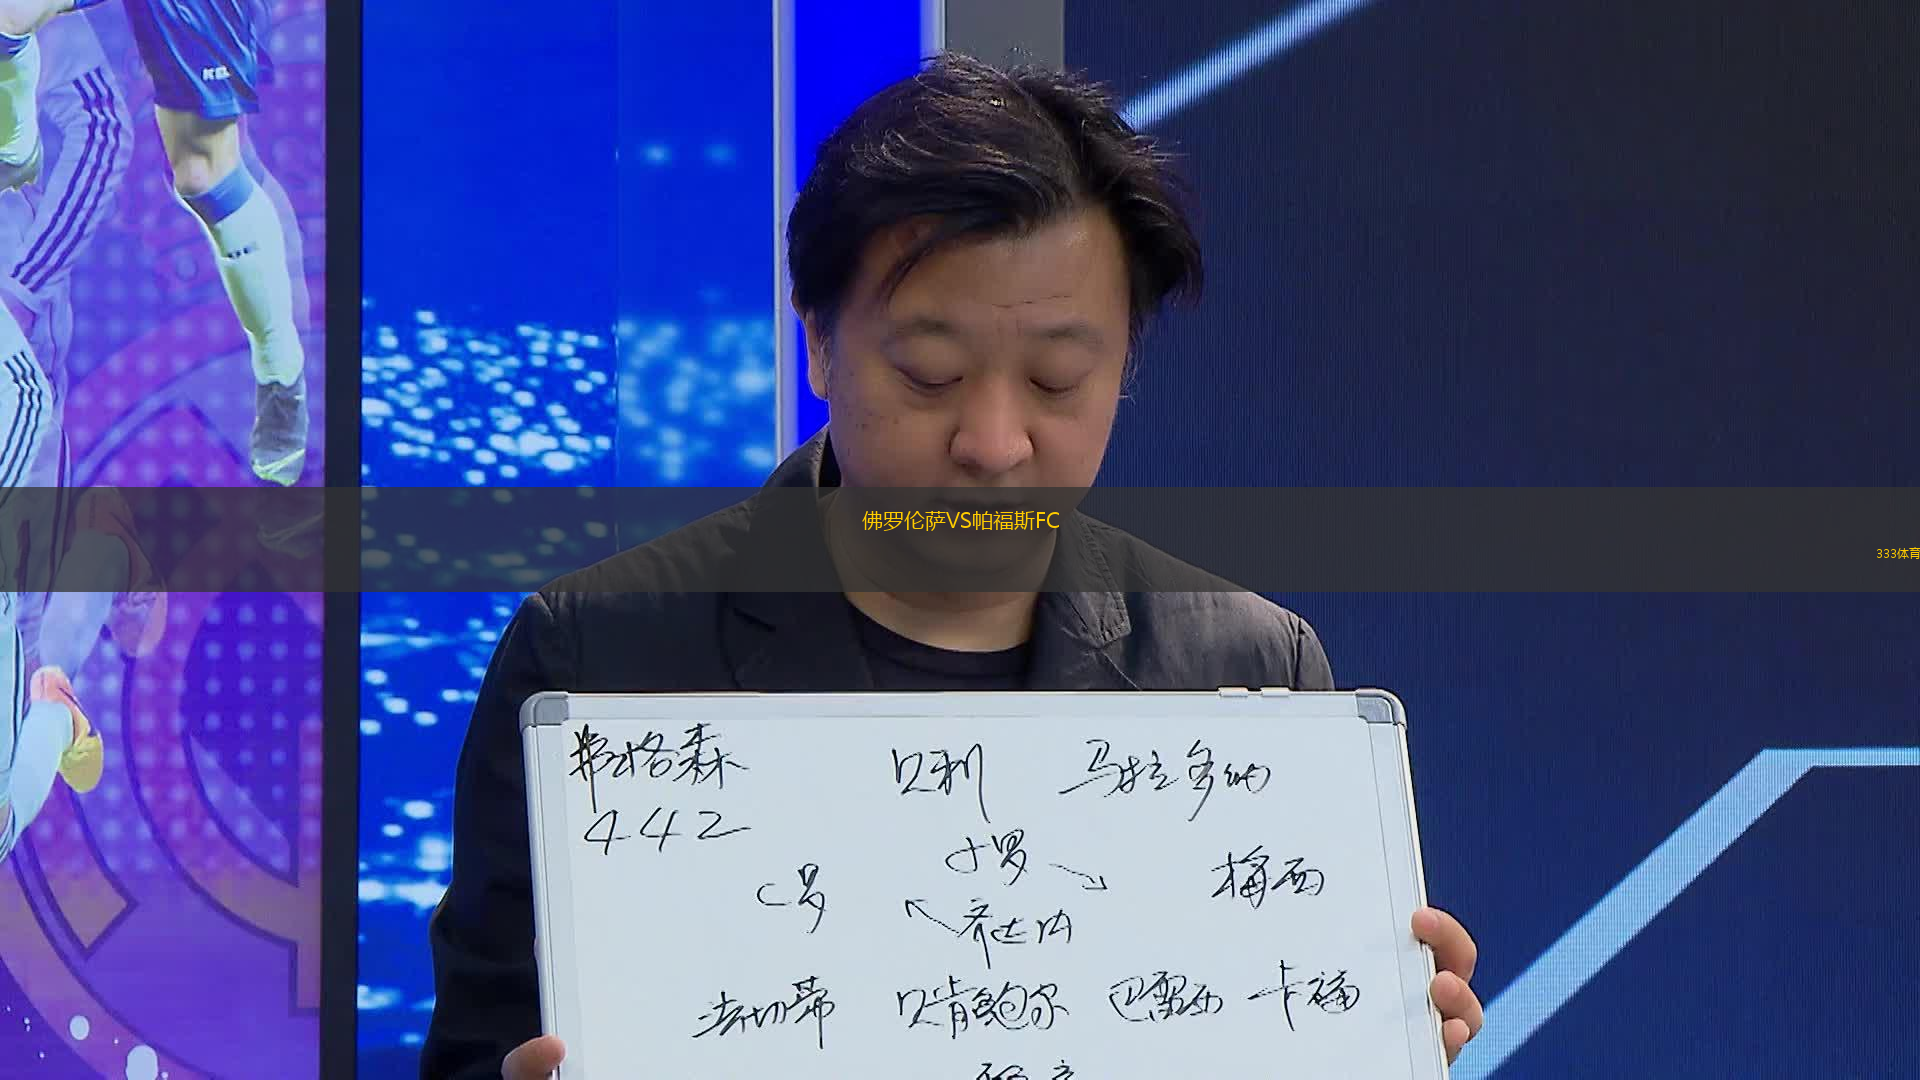 KEL
佛罗伦萨VS帕福斯FC
333体育
弗格森 贝利 马拉多纳
442
小罗
C罗 梅西
齐达内
法切蒂 贝肯鲍尔 巴雷西 卡福